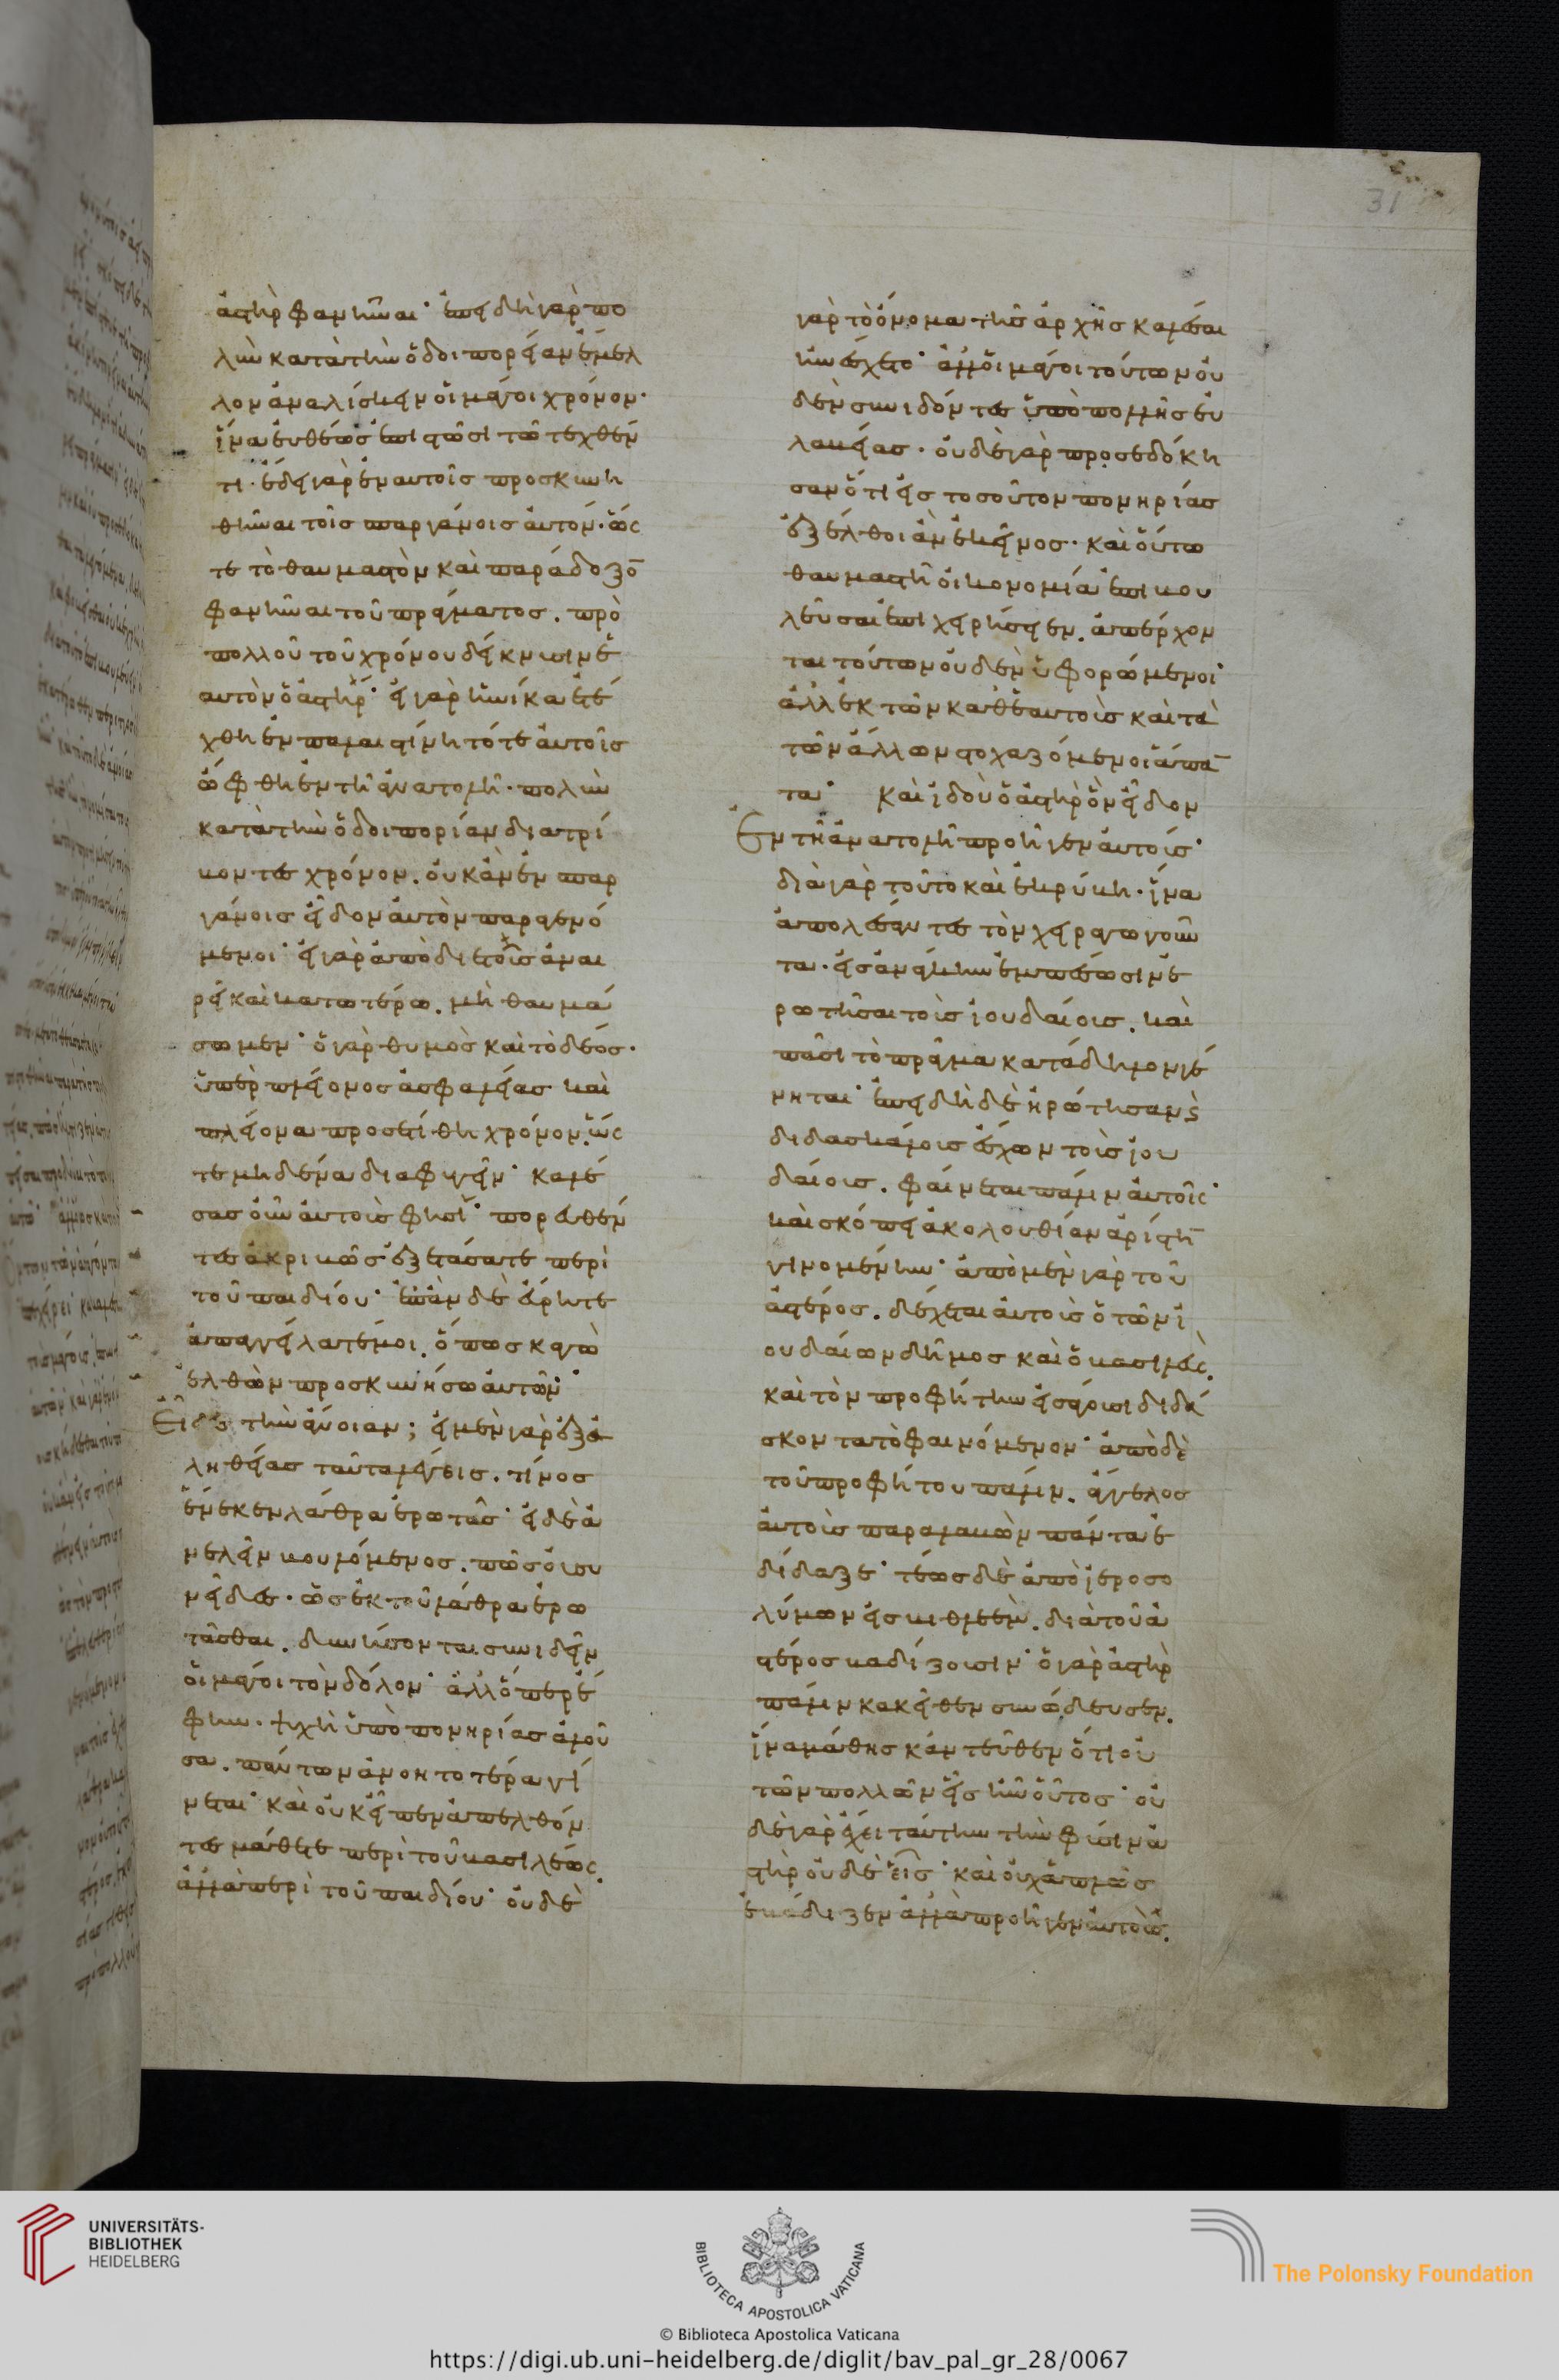 31
ἀστὴρ φανῆναι· ἐπειδὴ γὰρ πο
λὺν κατὰ τὴν ὁδοιπορείαν ἔμελ
λον ἀναλίσκειν οἱ μάγοι χρόνον·
ἵνα εὐθέως ἐπιστῶσι τῶ τεχθέν
τι· ἔδει γὰρ ἐν αυτοῖς προσκυνη
θῆναι τοῖς σπαργάνοις ἀυτόν· ὥς
τε τὸ θαυμαστὸν καὶ παράδοξο̄
φανῆναι τοῦ πράγματος. πρὸ
πολλοῦ τοῦ χρόνου δείκνυσιν ἑ
αυτὸν ὁ ἀστήρ· εἰ γὰρ ἡνίκα ἐτέ
χθη ἐν παλαιστίνη τότε ἀυτοῖς
ὤφθη ἐν τῆ ἀνατολῆ· πολὺν
κατὰ τὴν ὁδοιπορίαν διατρί
βοντες χρόνον. οὐκ ἂν ἐν σπαρ
γάνοις εἶδον ἀυτὸν παραγενό
μενοι· εἰ γὰρ ἀπὸ διετοῦς ἀναι
ρεῖ καὶ κατωτέρω. μὴ θαυμά
σωμεν· ὁ γὰρ θυμὸς καὶ τὸ δέος·
ὑπὲρ πλείονος ἀσφαλείας καὶ
πλείονα προσετίθη χρόνον. ὥς
τε μηδένα διαφυγεῖν· καλέ
σας οὖν ἀυτοὺς φησί· πορευθέν
τες ἀκριβῶς ἐξετάσατε περὶ
τοῦ παιδίου· ἐπὰν δὲ εὕρητε
ἀπαγγείλατέ μοι. ὅπως κἀγὼ
ἐλθὼν προσκυνήσω ἀυτῶ·
Εἶδες τὴν ἄνοιαν; εἰ μὲν γὰρ ἐξ ἀ
ληθείας ταῦτα λέγεις. τίνος
ἕνεκεν λάθρα ἐρωτᾶς· εἰ δὲ ἀ
νελεῖν βουλόμενος. πῶς ὀυ συ
νεῖδες· ὡς ἐκ τοῦ λάθρα ἐρω
τᾶσθαι. δυνήσονται συνιδεῖν
οἱ μάγοι τὸν δόλον· ἀλλ' ὅπερ ἔ
φην. ψυχὴ ὑπὸ πονηρίας ἁλοῦ
σα. πάντων ἀνοητοτέρα γί
νεται· καὶ οὐκ εἶπεν ἀπελθόν
τες μάθετε περὶ τοῦ βασιλέως.
ἀλλὰ περὶ τοῦ παιδίου· οὐδὲ
γὰρ τὸ ὄνομα τῆς ἀρχῆς καλέσαι
ἠνέσχετο· ἀλλ' οἱ μάγοι τούτων οὐ
δὲν συνιδόντες ὑπὸ πολλῆς εὐ
λαβείας. οὐδὲ γὰρ προσεδόκη
σαν ὅτι εἰς τοσοῦτον πονηρίας
ἐξέλθοι ἂν ἐκεῖνος· καὶ οὕτω
θαυμαστῆ οἰκονομία ἐπιβου
λεῦσαι ἐπιχειρήσειεν. ἀπέρχον
ται τούτων οὐδὲν ὑφορώμενοι·
ἀλλ' ἐκ τῶν καθ' ἑαυτοὺς καὶ τὰ
τῶν ἄλλων στοχαζόμενοι ἅπᾱ
τα· Καὶ ἰδοὺ ὁ ἀστὴρ ὃν εἶδον
Ἐν τῆ ἀνατολῆ προῆγεν ἀυτούς·
διὰ γὰρ τοῦτο καὶ ἐκρύβη· ἵνα
ἀπολέσαντες τὸν χειραγωγοῦν
τα· εἰς ἀνάγκην ἐμπέσωσιν ἐ
ρωτῆσαι τοὺς ἰουδαίους. καὶ
πᾶσι τὸ πρᾶγμα κατάδηλον γέ
νηται· ἐπειδὴ δὲ ἠρώτησαν κ(αὶ)
διδασκάλους ἔσχον τοὺς ἰου
δαίους. φαίνεται πάλιν ἀυτοῖς·
καὶ σκόπει ἀκολουθίαν ἀρίστη̄
γινομένην· ἀπὸ μὲν γὰρ τοῦ
ἀστέρος. δέχεται ἀυτοὺς ὁ τῶν ἰ
ουδαίων δῆμος καὶ ὁ βασιλεύς.
καὶ τὸν προφήτην εἰσάγουσι διδά
σκοντα τὸ φαινόμενον· ἀπὸ δὲ
τοῦ προφήτου πάλιν. ἄγγελος
ἀυτοὺς παραλαβὼν πάντα ἐ
δίδαξε· τέως δὲ ἀπὸ ἱεροσο
λύμων εἰς βιθλεὲμ. διὰ τοῦ ἀ
στέρος βαδίζουσιν· ὁ γὰρ ἀστὴρ
πάλιν κακεῖθεν συνώδευσεν.
ἵνα μάθης κἀντεῦθεν ὅτι οὐ
τῶν πολλῶν εἷς ἦν οὗτος· οὐ
δὲ γὰρ ἔχει ταύτην τὴν φύσιν ἀ
στὴρ οὐδὲ εἷς· καὶ οὐχ ἁπλῶς
ἐβάδιζεν ἀλλὰ προῆγεν ἀυτοὺς.
UNIVERSITÄTS-
BIBLIOTHEK
HEIDELBERG
BIBLIOTECA APOSTOLICA VATICANA
The Polonsky Foundation
© Biblioteca Apostolica Vaticana
https://digi.ub.uni-heidelberg.de/diglit/bav_pal_gr_28/0067